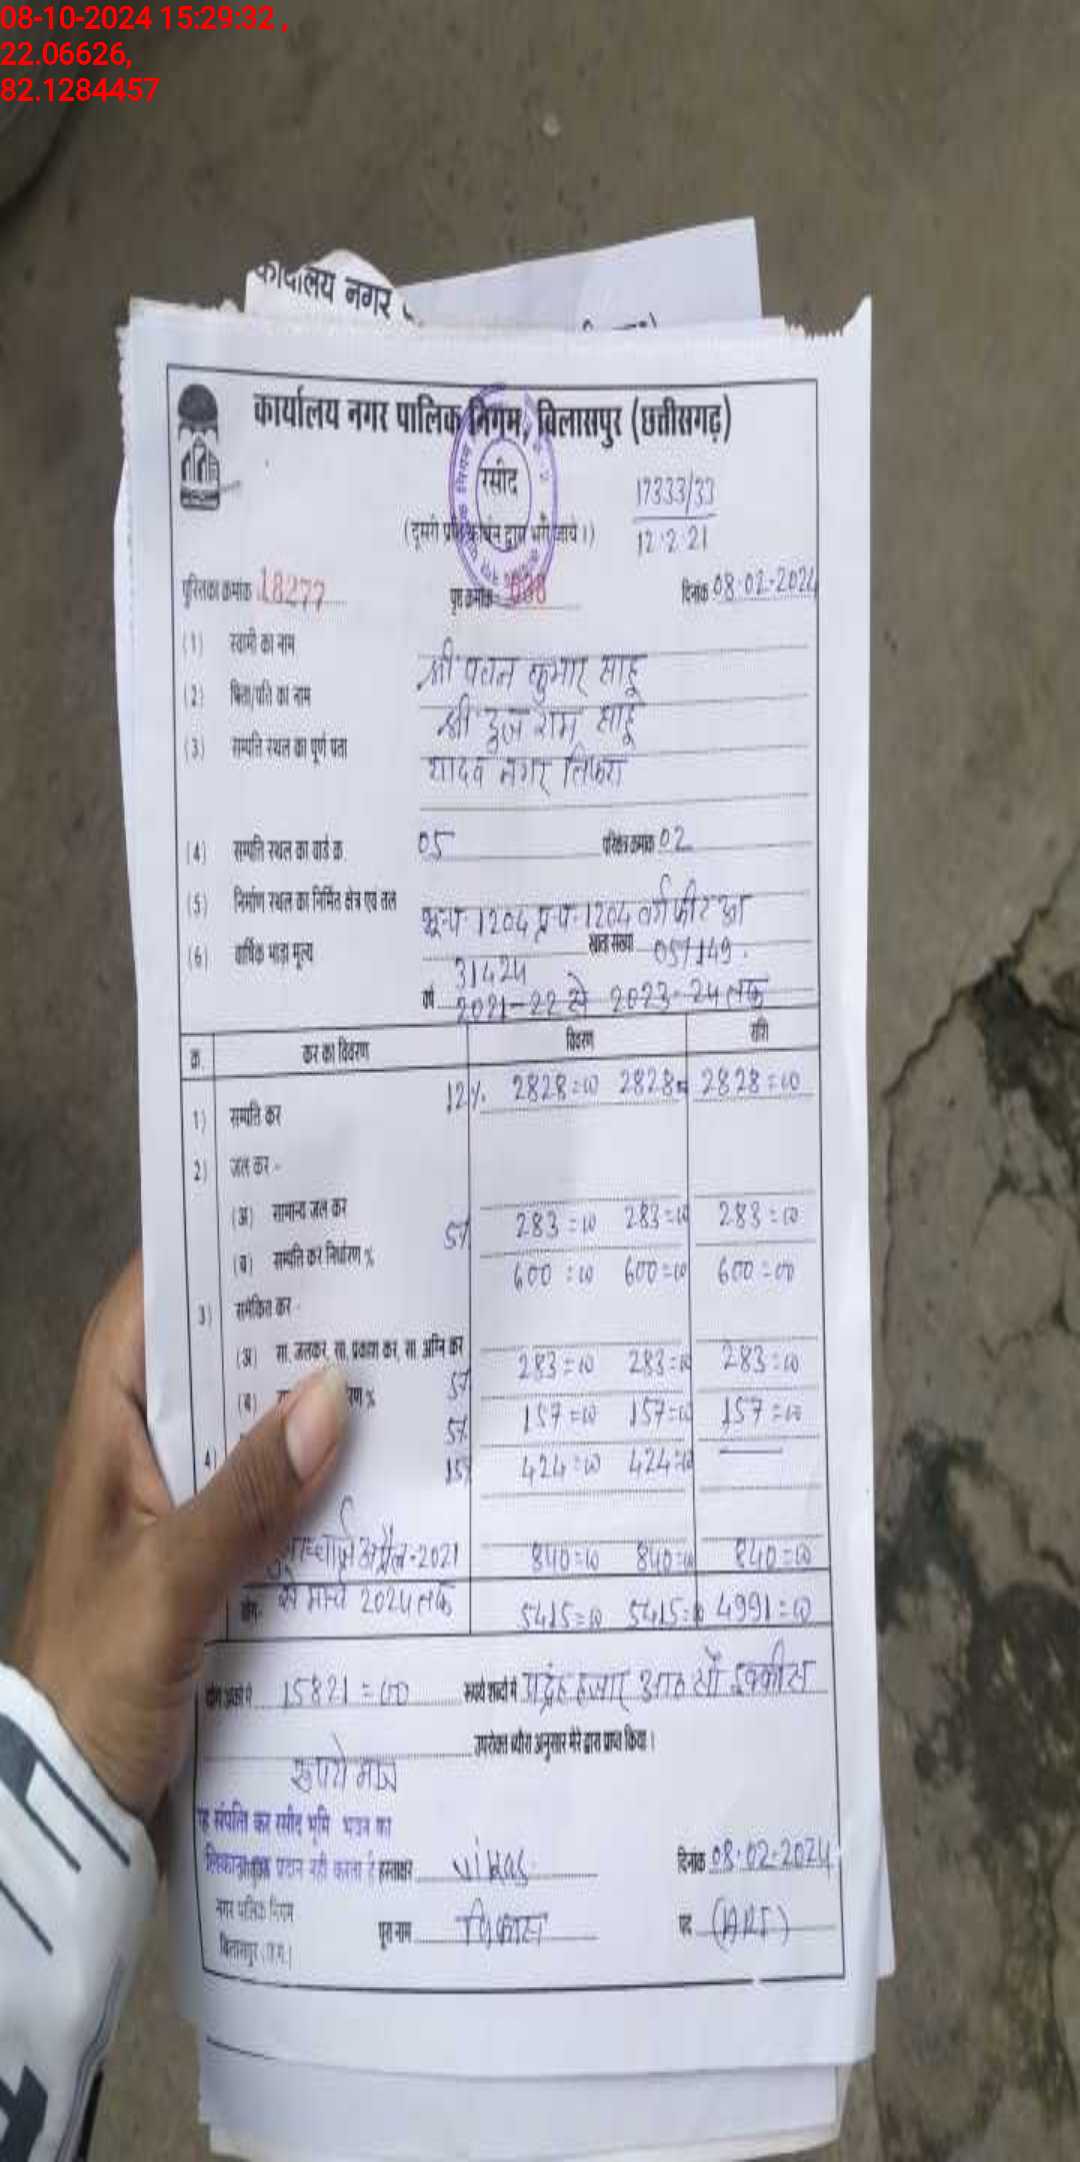 08-10-2024 15:29:32 ,
22.06626,
82.1284457
कार्यालय नगर
कार्यालय नगर पालिक निगम, बिलासपुर (छत्तीसगढ़)
रसीद
17333/33
12.2.21
पुस्तिका क्रमांक 18277 पृष्ठ क्रमांक 038 दिनांक 08.02-2024
(1) स्वामी का नाम श्री पवन कुमार साहू
(2) पिता/पति का नाम श्री दुज राम साहू
(3) सम्पत्ति स्थल का पूर्ण पता यादव नगर तिफरा
(4) सम्पत्ति स्थल का वार्ड क्र. 05 परिक्षेत्र क्रमांक 02
(5) निर्माण स्थल का निर्मित क्षेत्र एवं तल 1204 1204 वर्गफीट
(6) वार्षिक भाड़ा मूल्य 31424 खाता संख्या 057149.
वर्ष 2021-22 से 2023-24 तक
क्र. कर का विवरण विवरण राशि
1) सम्पत्ति कर 12% 2828=00 2828= 2828=00
2) जल कर -
(अ) सामान्य जल कर 5% 283=00 283=00 283=00
(ब) सम्पत्ति कर निर्धारण % 600=00 600=00 600=00
3) समेकित कर -
(अ) सा. जलकर, सा. प्रकाश कर, सा अग्नि कर 5% 283=00 283=00 283=00
(ब) % 5% 157=00 157=00 157=00
4) 15% 424=00 424=00
अप्रैल-2021 840=00 840=00 840=00
योग- से मार्च 2024 तक 5415=00 5415=00 4991=00
योग अंकों में 15821=00 रूपये शब्दों में पंद्रह हजार आठ सौ इक्कीस
रूपये मात्र उपरोक्त ब्यौरा अनुसार मेरे द्वारा प्राप्त किया।
यह संपत्ति कर रसीद भूमि भवन का
प्रदान नहीं करता है हस्ताक्षर vikas. दिनांक 08.02-2024
नगर पालिक निगम
बिलासपुर (छ.ग.) पूरा नाम विकास पद (ARI)